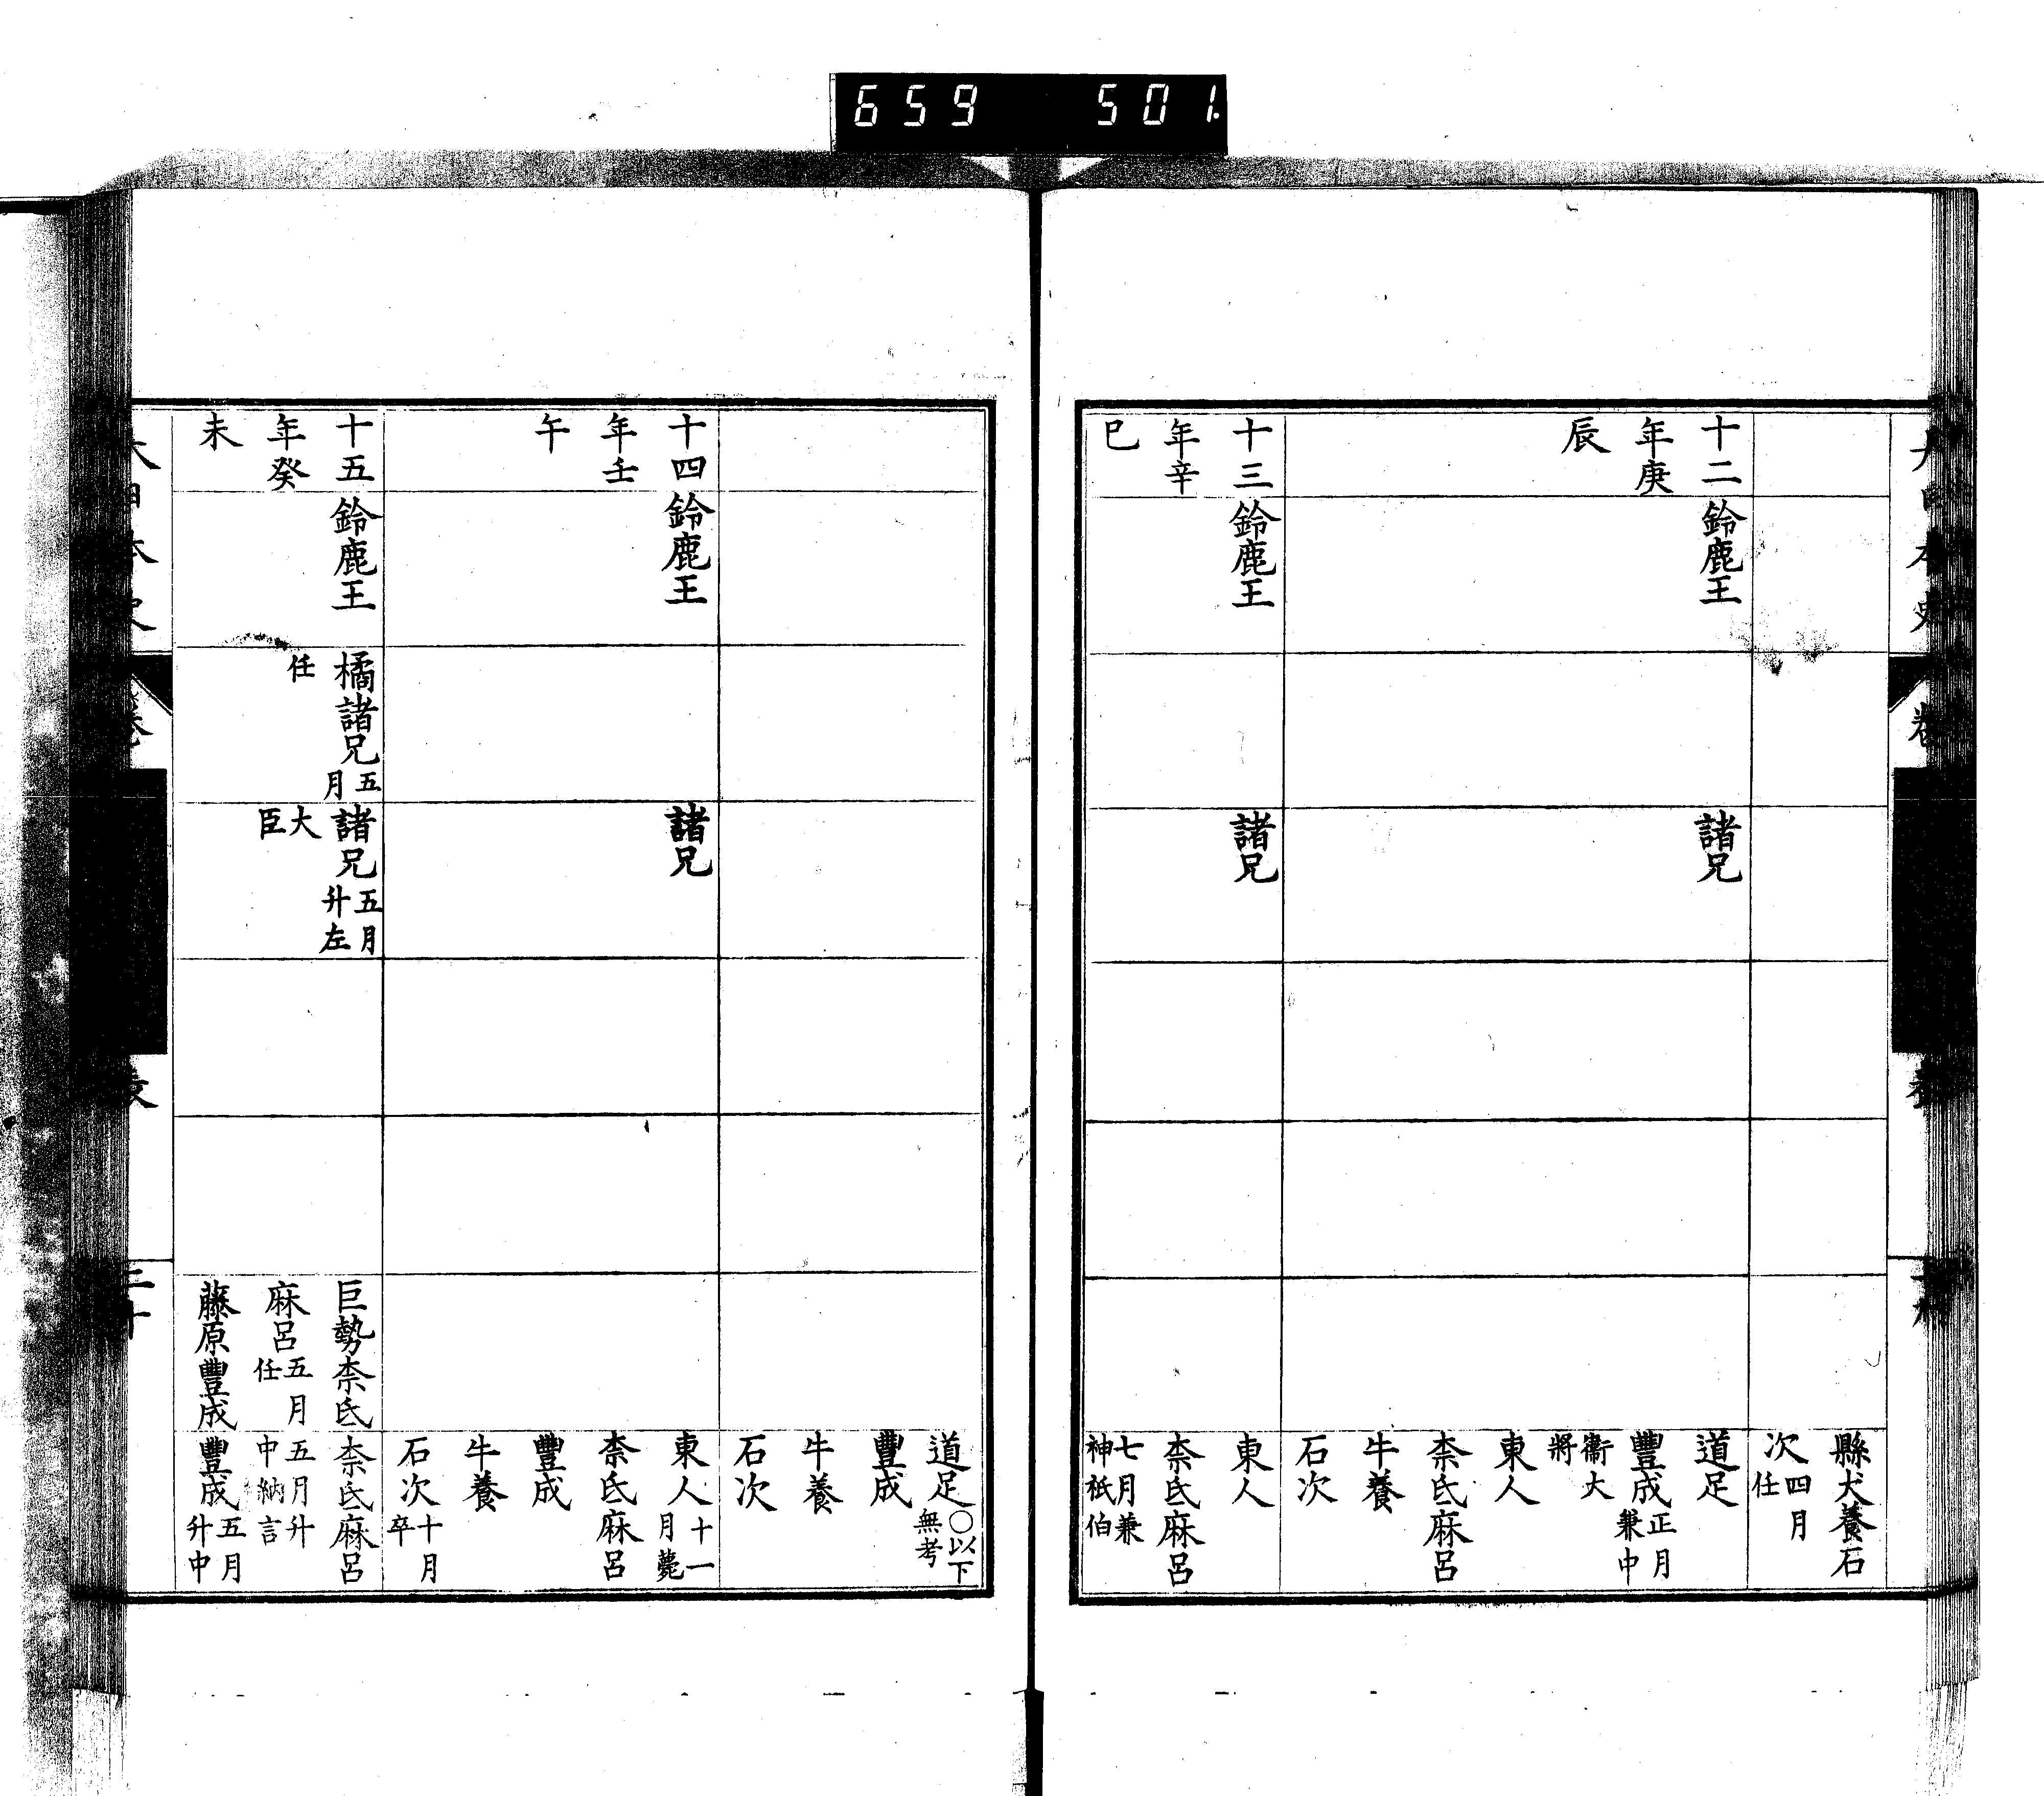 659 501.
縣犬養石
次四月任
十二
年庚
辰
鈴鹿王
諸兄
道足
豐成正月兼中
衞大將
東人
奈氐麻呂
牛養
石次
十三
年辛
巳
鈴鹿王
諸兄
東人
奈氐麻呂
七月兼神祇伯
道足○以下無考
豐成
牛養
石次
十四
年壬
午
鈴鹿王
諸兄
東人十一月薨
奈氐麻呂
豐成
牛養
石次十月卒
十五
年癸
未
鈴鹿王
橘諸兄五月
任
諸兄五月升左
大臣
巨勢奈氐
麻呂五月任
藤原豐成
奈氐麻呂
五月升中納言
豐成五月升中